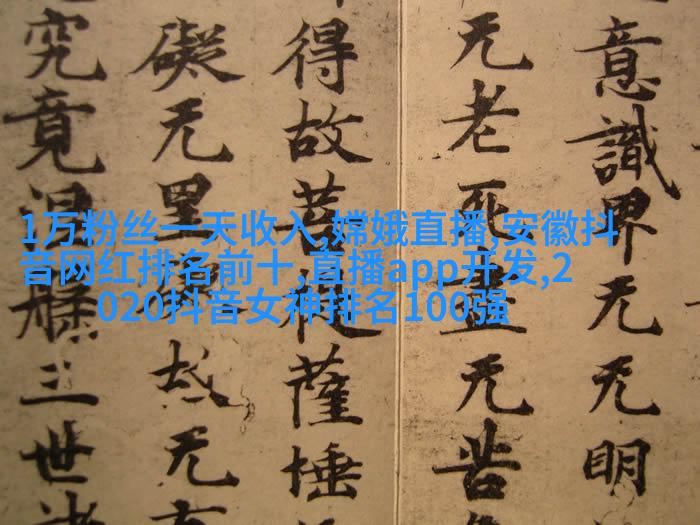 1万粉丝一天收入,嫦娥直播,安徽抖
音网红排名前十,直播app开发,2
020抖音女神排名100强
意識界无无明
无老死盡无苦
得故菩提薩埵
礙无罣礙故无
究竟涅槃三世諸